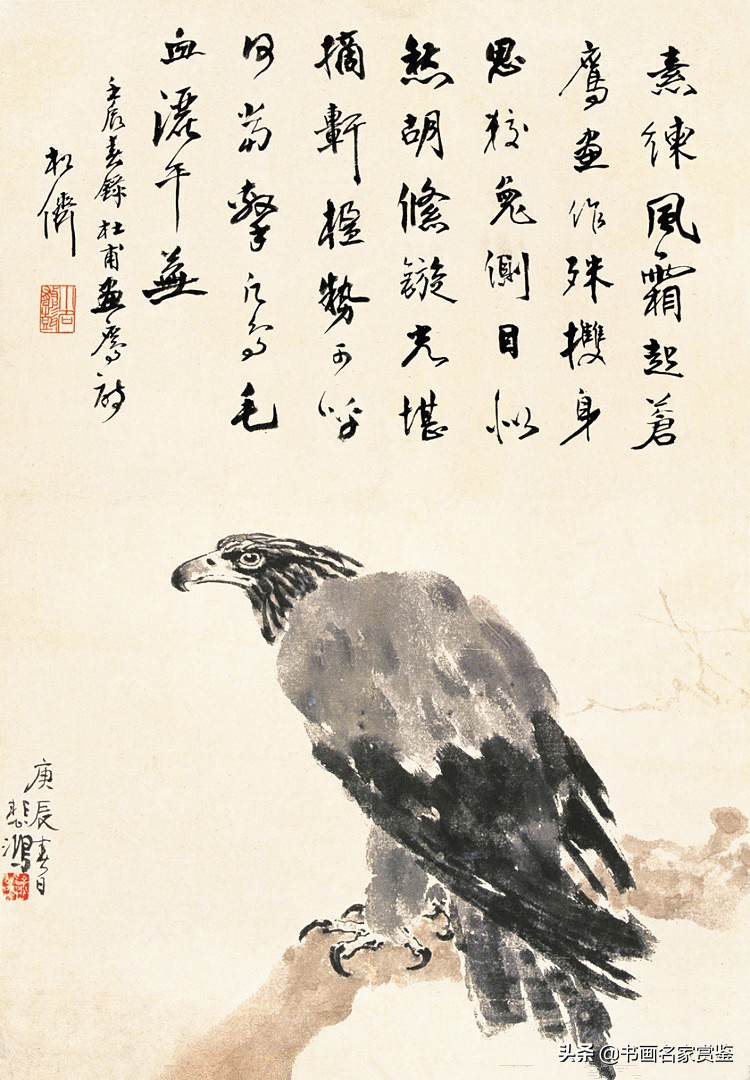 素練風霜起蒼
鷹畫作殊㩳身
思狡兔側目似
愁胡絛鏇光堪
摘軒楹勢可呼
何當擊凡鳥毛
血灑平蕪
壬辰春錄杜甫畫鷹詩
庚辰春日
悲鴻
头条 @书画名家赏鉴